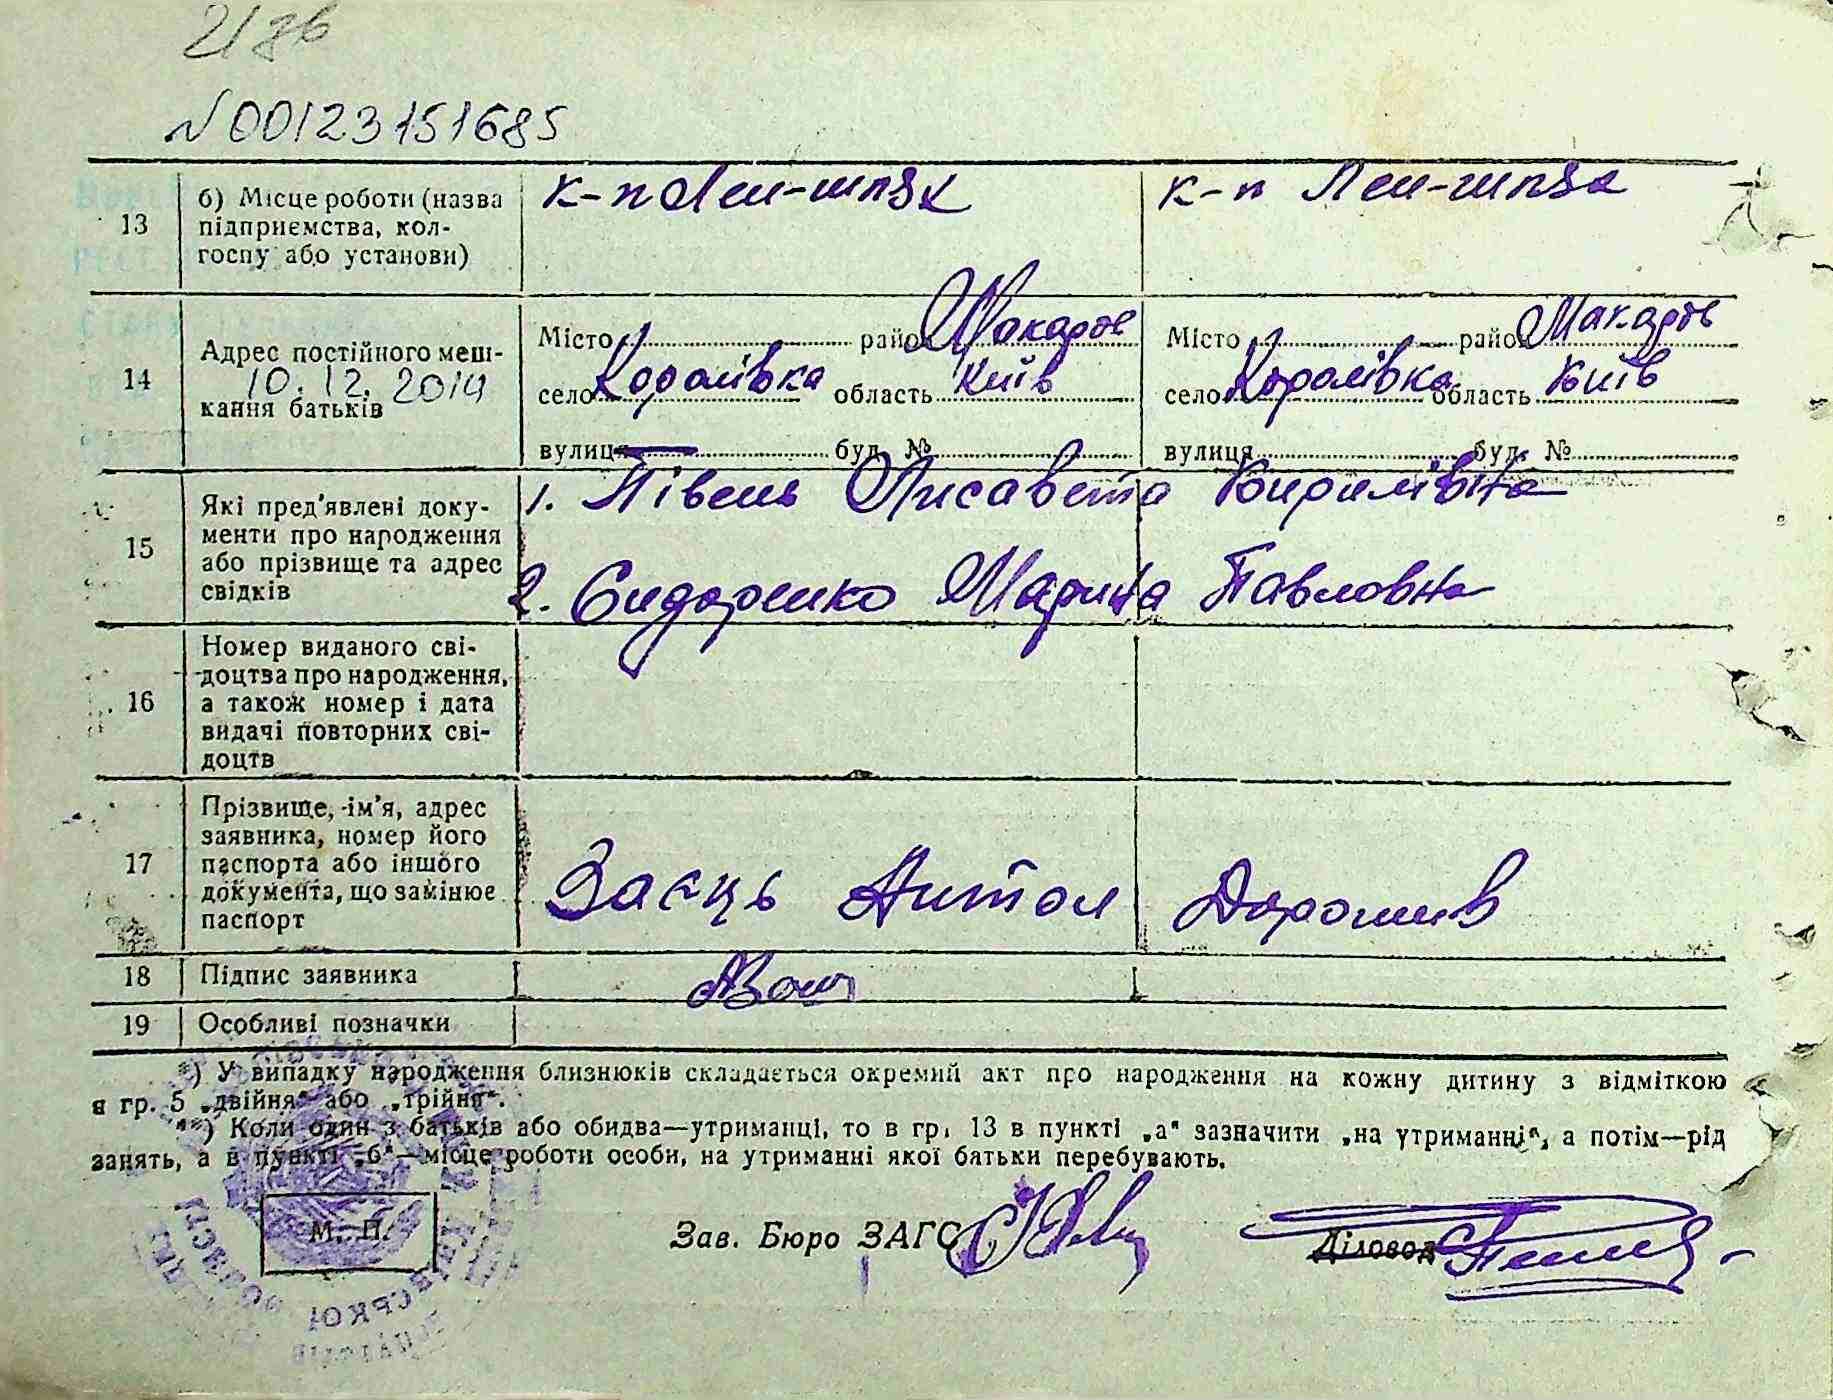 21зв
N00123151685
13
б) Місце роботи (назва
підприємства, кол-
госпу або установи)
к-п Лен-шлях
к-п Лен-шлях
14
Адрес постійного меш-
10.12.2014
кання батьків
Місто район Макарів
село Королівка область Київ
вулиця буд. №
Місто район Макарів
село Королівка область Київ
вулиця буд. №
15
Які пред'явлені доку-
менти про народження
або прізвище та адрес
свідків
1. Півень Лисавета Кирилівна
2. Сидоренко Марина Павловна
16
Номер виданого сві-
доцтва про народження,
а також номер і дата
видачі повторних сві-
доцтв
17
Прізвище, ім'я, адрес
заявника, номер його
паспорта або іншого
документа, що замінює
паспорт
Заєць Антон Дорошив
18
Підпис заявника
19
Особливі позначки
*) У випадку народження близнюків складається окремий акт про народження на кожну дитину з відміткою
в гр. 5 „двійня" або „трійня".
**) Коли один з батьків або обидва—утриманці, то в гр. 13 в пункті „а" зазначити „на утриманні", а потім—рід
занять, а в пункті „б"—місце роботи особи, на утриманні якої батьки перебувають.
М. П.
Зав. Бюро ЗАГС
Діловод